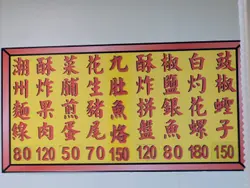 豉椒蟶子150
白灼花螺180
椒鹽銀魚80
酥炸拼盤120
九肚魚烙150
花生豬尾70
菜脯煎蛋50
酥炸果肉120
潮州麵線80